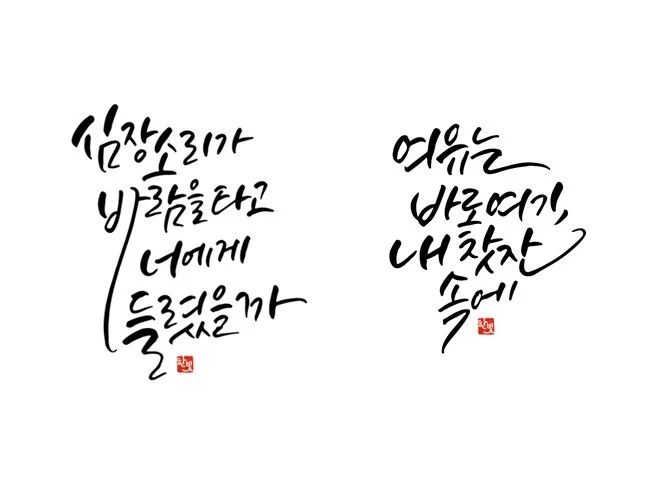 심장소리가
바람을타고
너에게
들렸을까
한빛
여유는
바로여기,
내 찻잔
속에
한빛